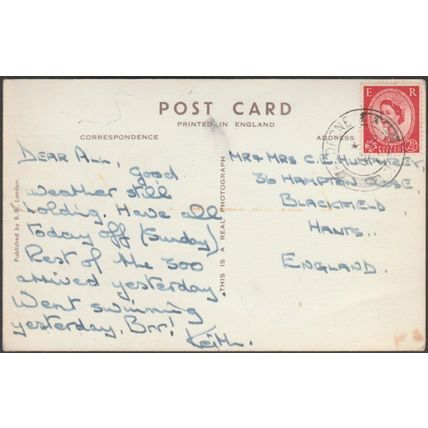 POST CARD
PRINTED IN ENGLAND
CORRESPONDENCE
ADDRESS
E R
2½
Published by London.
THIS IS A REAL PHOTOGRAPH
DEAR ALL,
Good
weather still
holding. Have all
today off (Sunday)
Rest of the 500
arrived yesterday.
Went swimming
yesterday, Brr!
Keith.
MR & MRS C.E.
36
BLACKFIELD,
HANTS.,
ENGLAND.